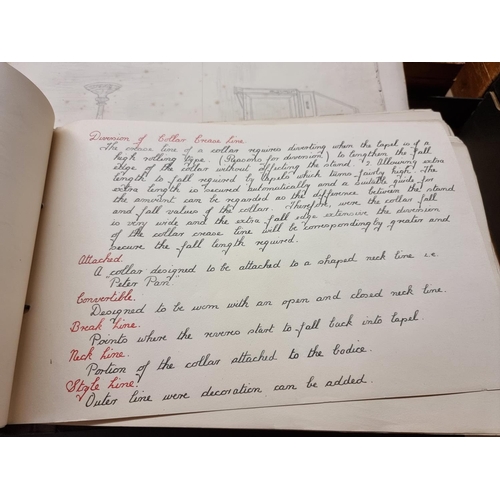 Diversion of Collar Crease Line.
The crease line of a collar requires diverting when the lapel is of a
high rolling type. (Reasons for diversion) to lengthen the fall
edge of the collar without affecting the stand. 2 Allowing extra
length to fall required by lapels which turns fairly high. The
extra length is secured automatically and a suitable guide for
the amount can be regarded as the difference between the stand
and fall values of the collar. Therefore, were the collar fall
is very wide and the extra fall edge extensive the diversion
of the collar crease line will be correspondingby grater and
secure the fall length required.
Attached.
A collar designed to be attached to a shaped neck line i.e.
"Peter Pan"
Convertible.
Designed to be worn with an open and closed neck line.
Break Line.
Points where the reveres start to fall back into lapel.
Neck Line.
Portion of the collar attached to the bodice.
Style Line.
Outer line were decoration can be added.